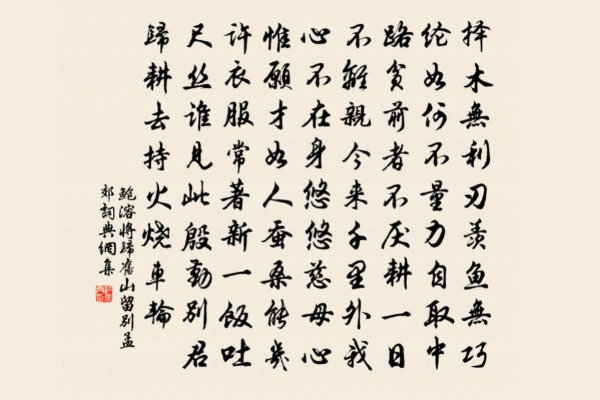 择木無利刃羨魚無巧
纶如何不量力自取中
路贫前者不厌耕一日
不離親今来千里外我
心不在身悠悠慈母心
惟願才如人蚕桑能幾
许衣服常著新一飯吐
尺丝谁見此殷勤别君
歸耕去持火烧車輪
鲍溶将歸舊山留别孟
郊詞典網集